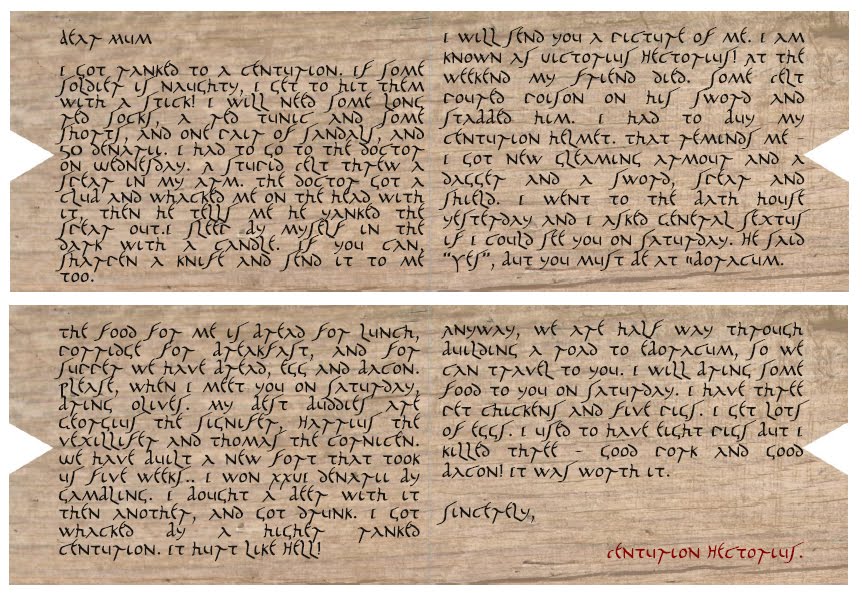 dear mum
i got ranked to a centurion. if some
soldier is naughty, i get to hit them
with a stick! i will need some long
red socks, a red tunic and some
shorts, and one pair of sandals, and
50 denarii. i had to go to the doctor
on wednesday. a stupid celt threw a
spear in my arm. the doctor got a
club and whacked me on the head with
it, then he tells me he yanked the
spear out.i sleep by myself in the
dark with a candle. if you can,
sharpen a knife and send it to me
too.
i will send you a picture of me. i am
known as uictorius hectorius! at the
weekend my friend died. some celt
poured poison on his sword and
stabbed him. i had to buy my
centurion helmet. that reminds me -
i got new gleaming armour and a
dagger and a sword, spear and
shield. i went to the bath house
yesterday and i asked general sextus
if i could see you on saturday. he said
"yes", but you must be at "boracum.
the food for me is bread for lunch,
porridge for breakfast, and for
supper we have bread, egg and bacon.
please, when i meet you on saturday,
bring olives. my best buddies are
georgius the signifer, harrius the
vexillifer and thomas the cornicen.
we have built a new fort that took
us five weeks.. i won xxui denarii by
gambling. i bought a beer with it
then another, and got drunk. i got
whacked by a higher ranked
centurion. it hurt like hell!
anyway, we are half way through
building a road to eboracum, so we
can travel to you. i will bring some
food to you on saturday. i have three
pet chickens and five pigs. i get lots
of eggs. i used to have eight pigs but i
killed three - good pork and good
bacon! it was worth it.
sincerely,
centurion hectorius.